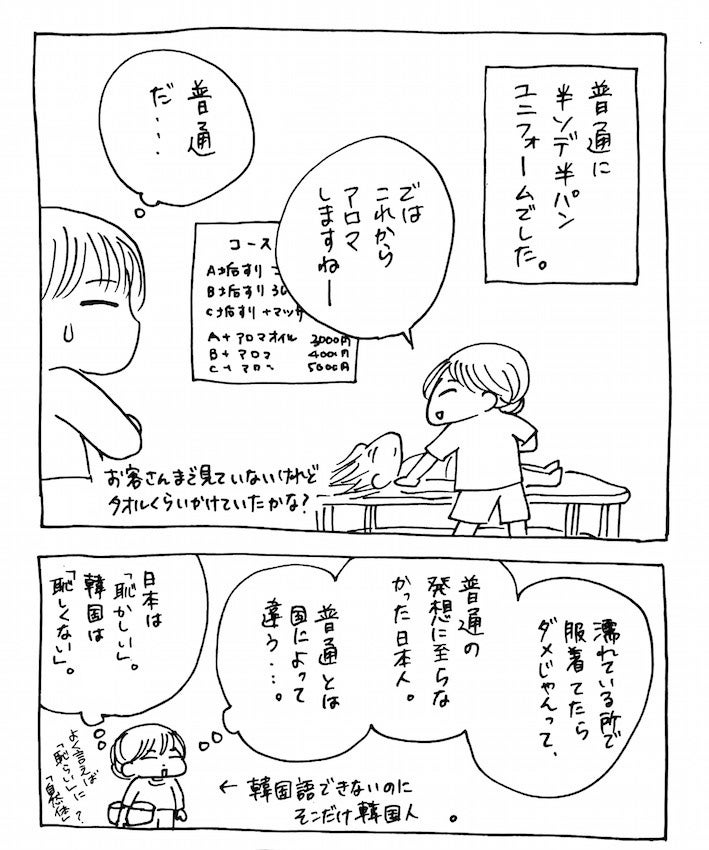 普通に
半ソデ半パン
ユニフォームでした。
では
これから
アロマ
しますねー
普通
だ・・・
コース
A垢すり
B垢すり
C垢すり+マッサ
A+アロマオイル 3000円
B+アロマ 4000円
C+アロマ 5000円
お客さんまで見ていないけれど
タオルくらいかけていたかな?
濡れている所で
服着てたら
ダメじゃんって、
普通の
発想に至らな
かった日本人。
普通とは
国によって
違う・・・。
日本は
「恥かしい」。
韓国は
「恥しくない」。
よく言えば
「恥らい」に
「自然体」?
← 韓国語できないのに
そこだけ韓国人。